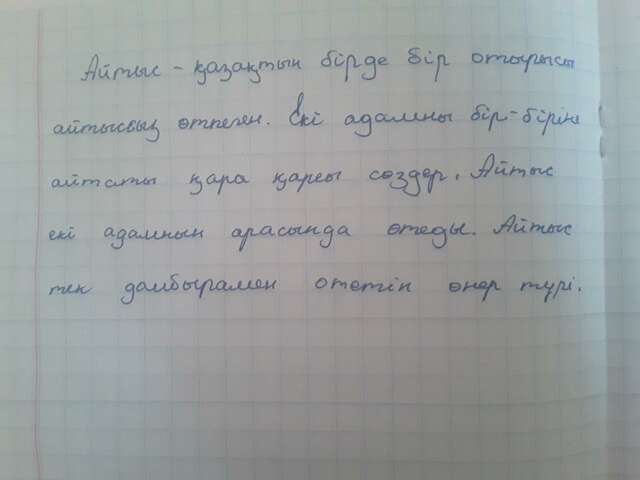 Айтыс - қазақтын бірде бір отырысы
айтыссыз өтпеген. Екі адамны бір-біріне
айтаты қара қарсы сөздер. Айтыс
екі адамнын арасында өтеды. Айтыс
тек домбырамен отетін өнер түрі.